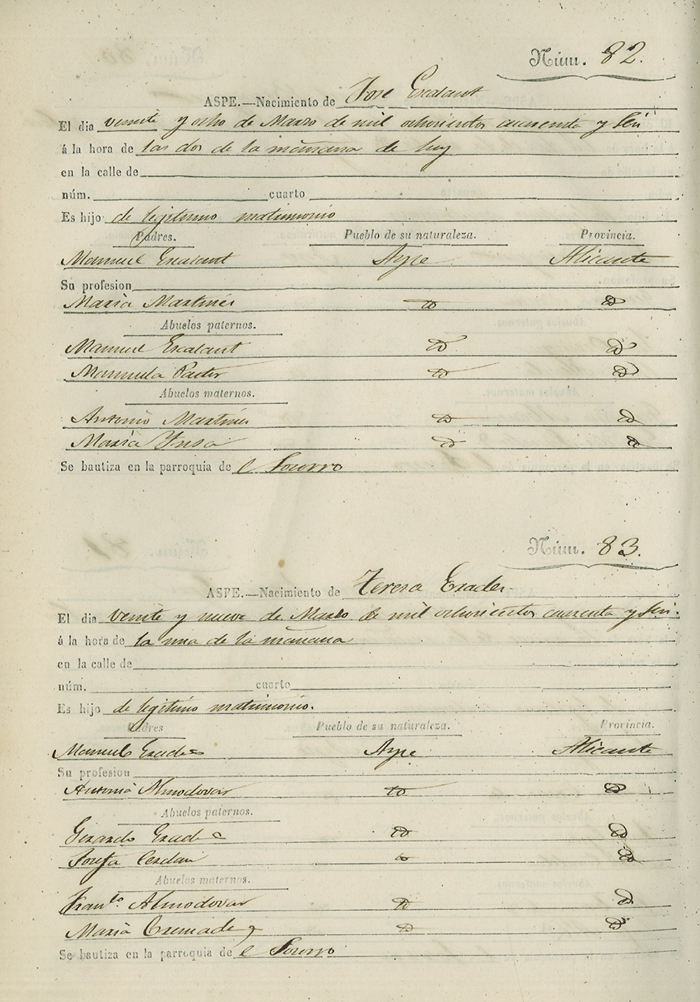 Núm. 82.
ASPE.—Nacimiento de Jose Escalant
El dia veinte y ocho de Marzo de mil ochocientos cuarenta y seis
á la hora de las dos de la mañana de hoy
en la calle de
núm. cuarto
Es hijo de legitimo matrimonio
Padres. Pueblo de su naturaleza. Provincia.
Manuel Escalant Aspe Alicante
Su profesion
Maria Martines id id
Abuelos paternos.
Manuel Escalant id id
Manuela Pastor id id
Abuelos maternos.
Antonio Martines id id
Maria Ynsa id id
Se bautiza en la parroquia de el Socorro
Núm. 83.
ASPE.—Nacimiento de Teresa
El dia veinte y nueve de Marzo de mil ochocientos cuarenta y seis.
á la hora de la una de la mañana
en la calle de
núm. cuarto
Es hijo de legitimo matrimonio.
Padres Pueblo de su naturaleza. Provincia.
Manuel Aspe Alicante
Su profesion
Almodovar id id
Abuelos paternos.
Gerardo id id
Josefa Cerdan id id
Abuelos maternos.
Franco. Almodovar id id
Maria Cremades id id
Se bautiza en la parroquia de el Socorro